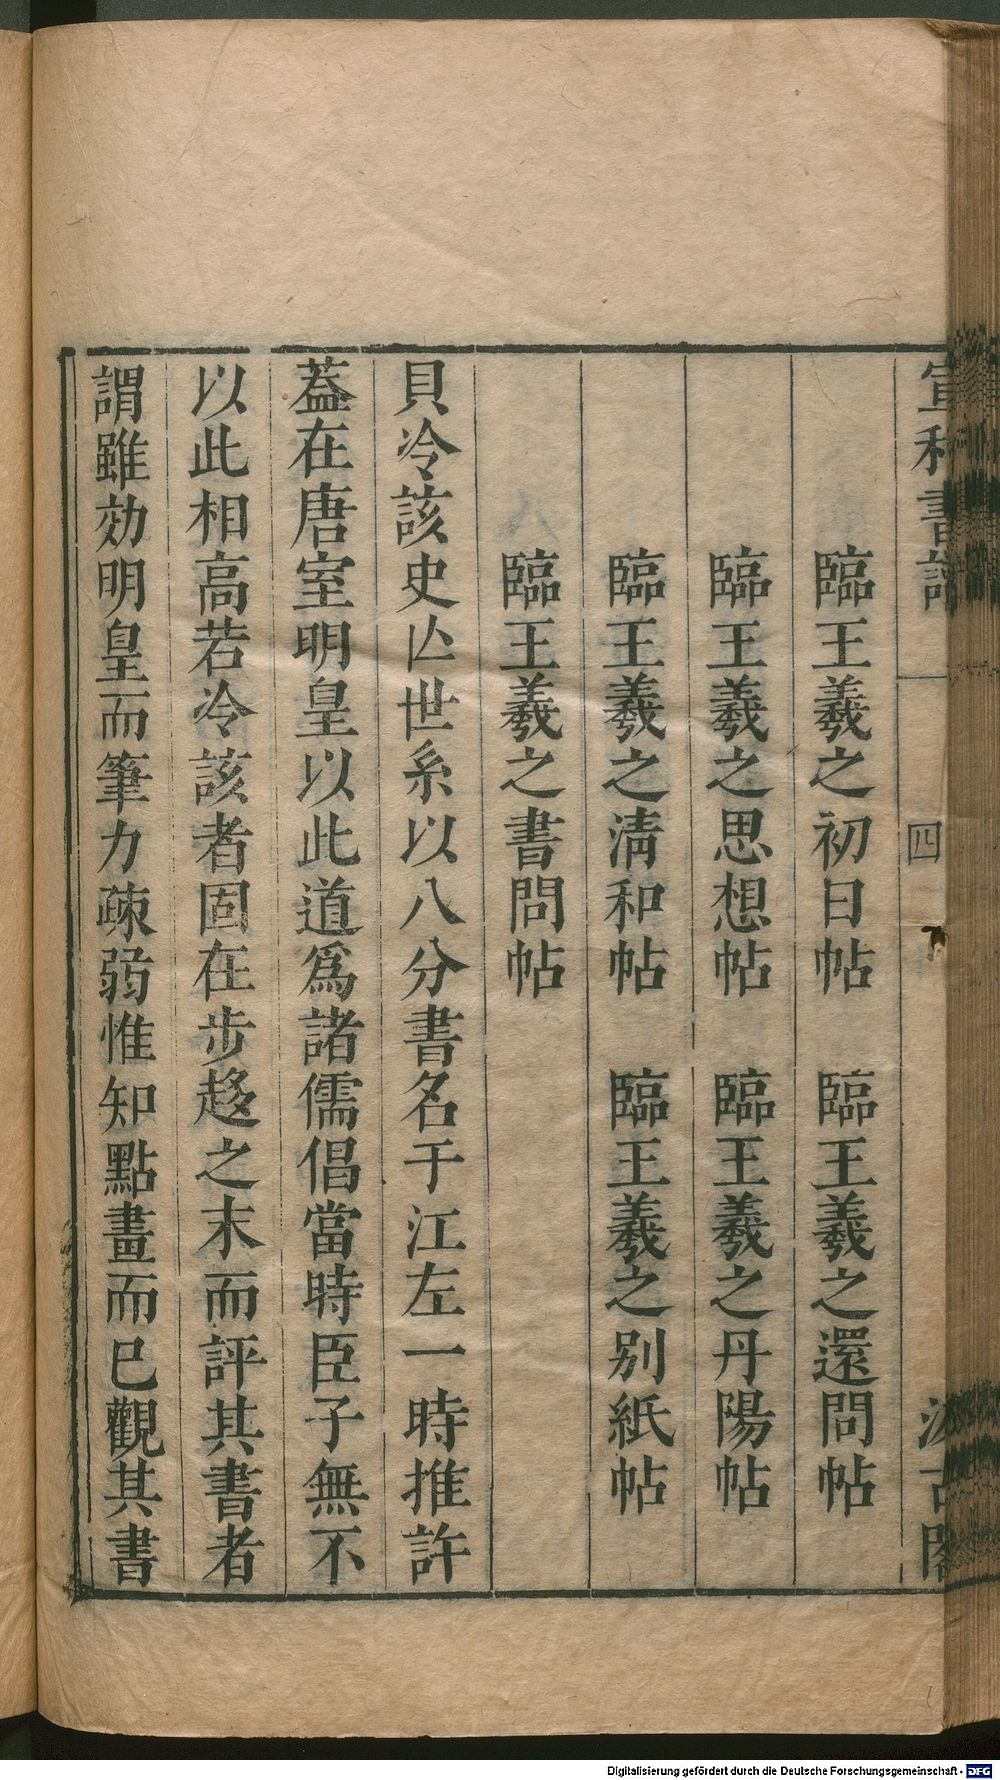 宣和書譜 四 汲古閣
臨王羲之初日帖 臨王羲之還問帖
臨王羲之思想帖 臨王羲之丹陽帖
臨王羲之淸和帖 臨王羲之別紙帖
臨王羲之書問帖
貝冷該史亾世系以八分書名于江左一時推許
葢在唐室明皇以此道爲諸儒倡當時臣子無不
以此相高若冷該者固在步趍之末而評其書者
謂雖効明皇而筆力疎弱惟知點畫而已觀其書
Digitalisierung gefördert durch die Deutsche Forschungsgemeinschaft - DFG